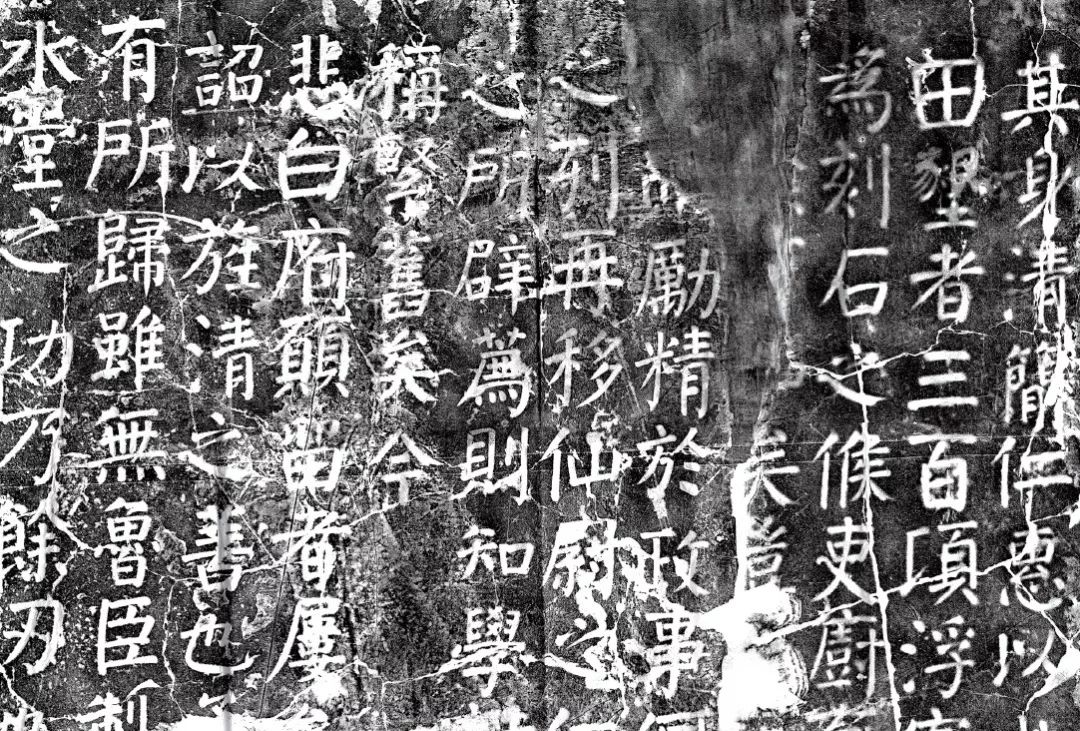 其身清簡仁惠以
田墾者三百頃浮
為刻石之候吏廚
矣
勵精於政事
之列再移仙尉之
之所辟薦則知學
稱緊舊矣今
悲白府願留者屢
詔以旌清之善也
有所歸雖無魯臣製
水臺之功刀餘刃